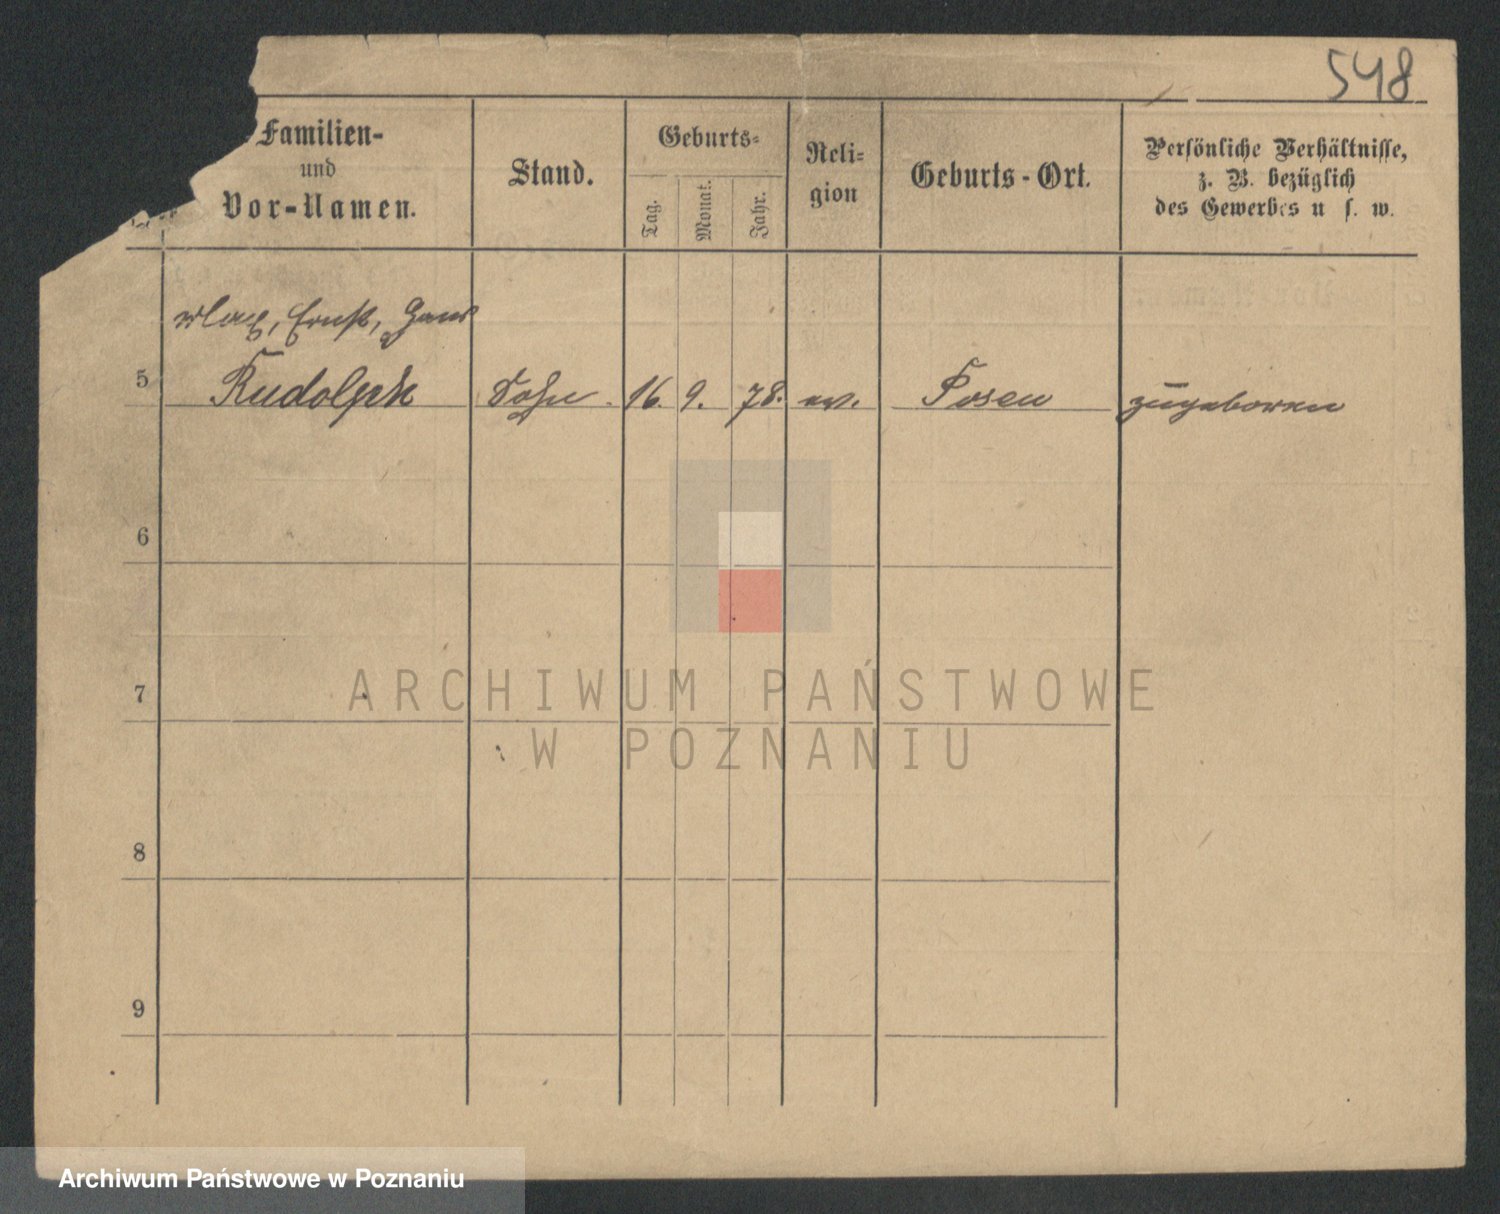 548
Familien-
und
Vor-Namen.
Stand.
Geburts-
Tag.
Monat.
Jahr.
Reli-
gion
Geburts-Ort.
Persönliche Verhältnisse,
z. B. bezüglich
des Gewerbes u. s. w.
Max, Ernst, Hans
5 Rudolph Sohn 16. 9. 78. ev. Posen zugeboren
6
7
8
9
ARCHIWUM PAŃSTWOWE
W POZNANIU
Archiwum Państwowe w Poznaniu